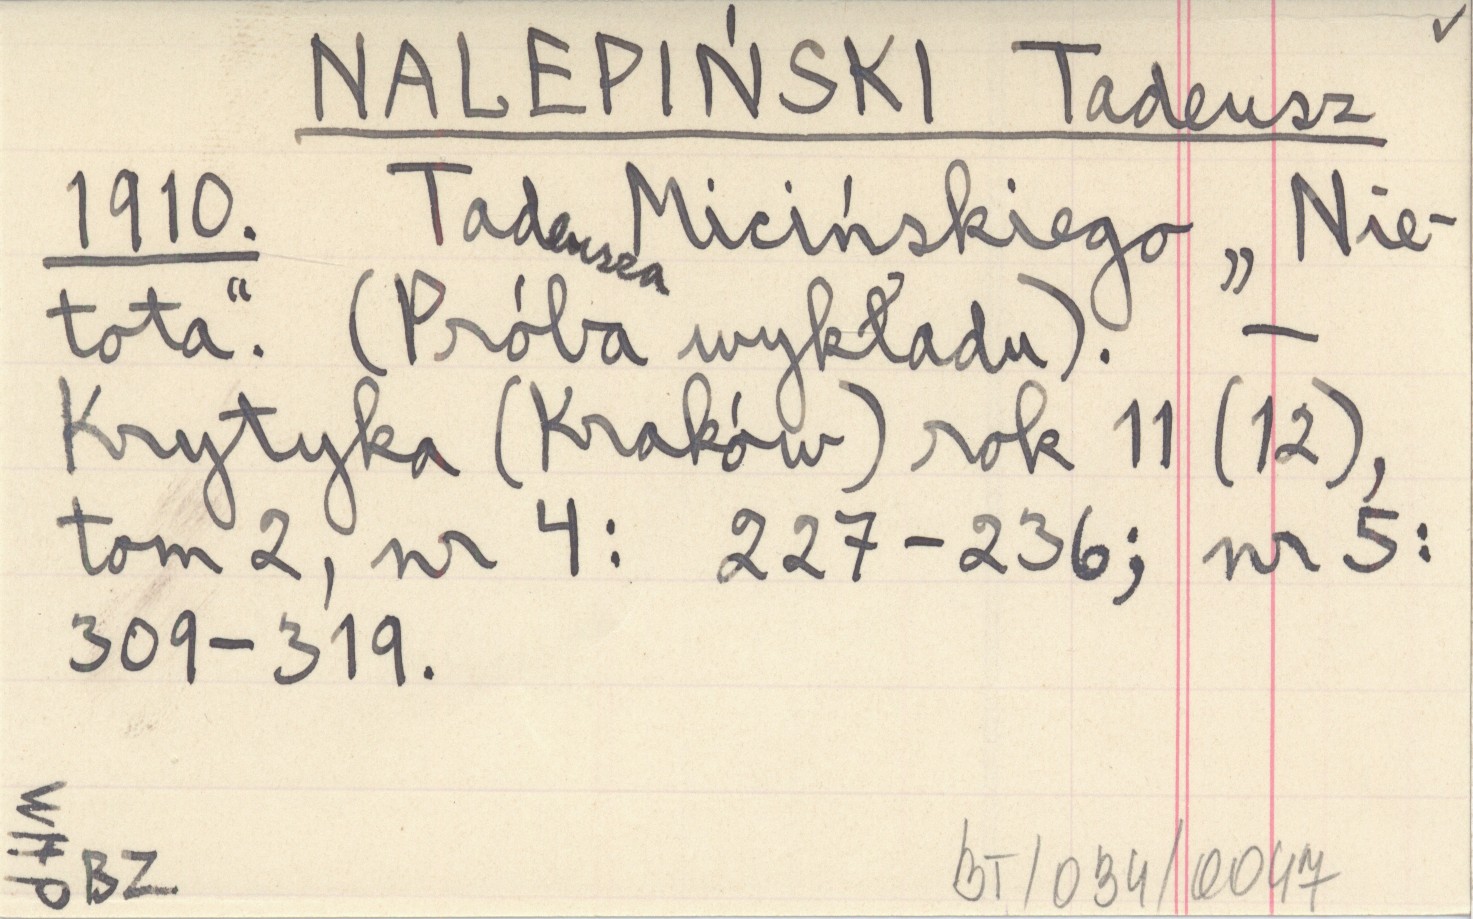 NALEPIŃSKI Tadeusz ✓
1910. Tadeusza Micińskiego „Nie-
tota“. (Próba wykładu). —
Krytyka (Kraków) rok 11 (12),
tom 2, nr 4: 227-236; nr 5:
309-319.
BZ
BT/034/0047